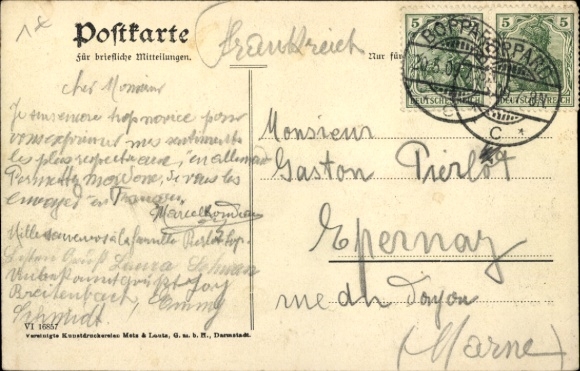 Postkarte
Für briefliche Mitteilungen.
Frankreich
Nur für
5
5
BOPPARD
BOPPARD
DEUTSCHES REICH
DEUTSCHES REICH
C
C
Cher Monsieur
Je suis encore trop novice pour
vous exprimer mes sentiments
les plus respectueux, en allemand
Permettez moi donc, de vous les
envoyer en Français.
Marcel
Mille à la famille Pierlot
Gruß Laura Lehman
Unbekannterweise grüßt
Breitenbach, Emmy
Schmidt.
VI 16857
Vereinigte Kunstdruckereien Metz & Lautz, G. m. b. H., Darmstadt.
Monsieur
Gaston Pierlot
Epernay
rue
(Marne)